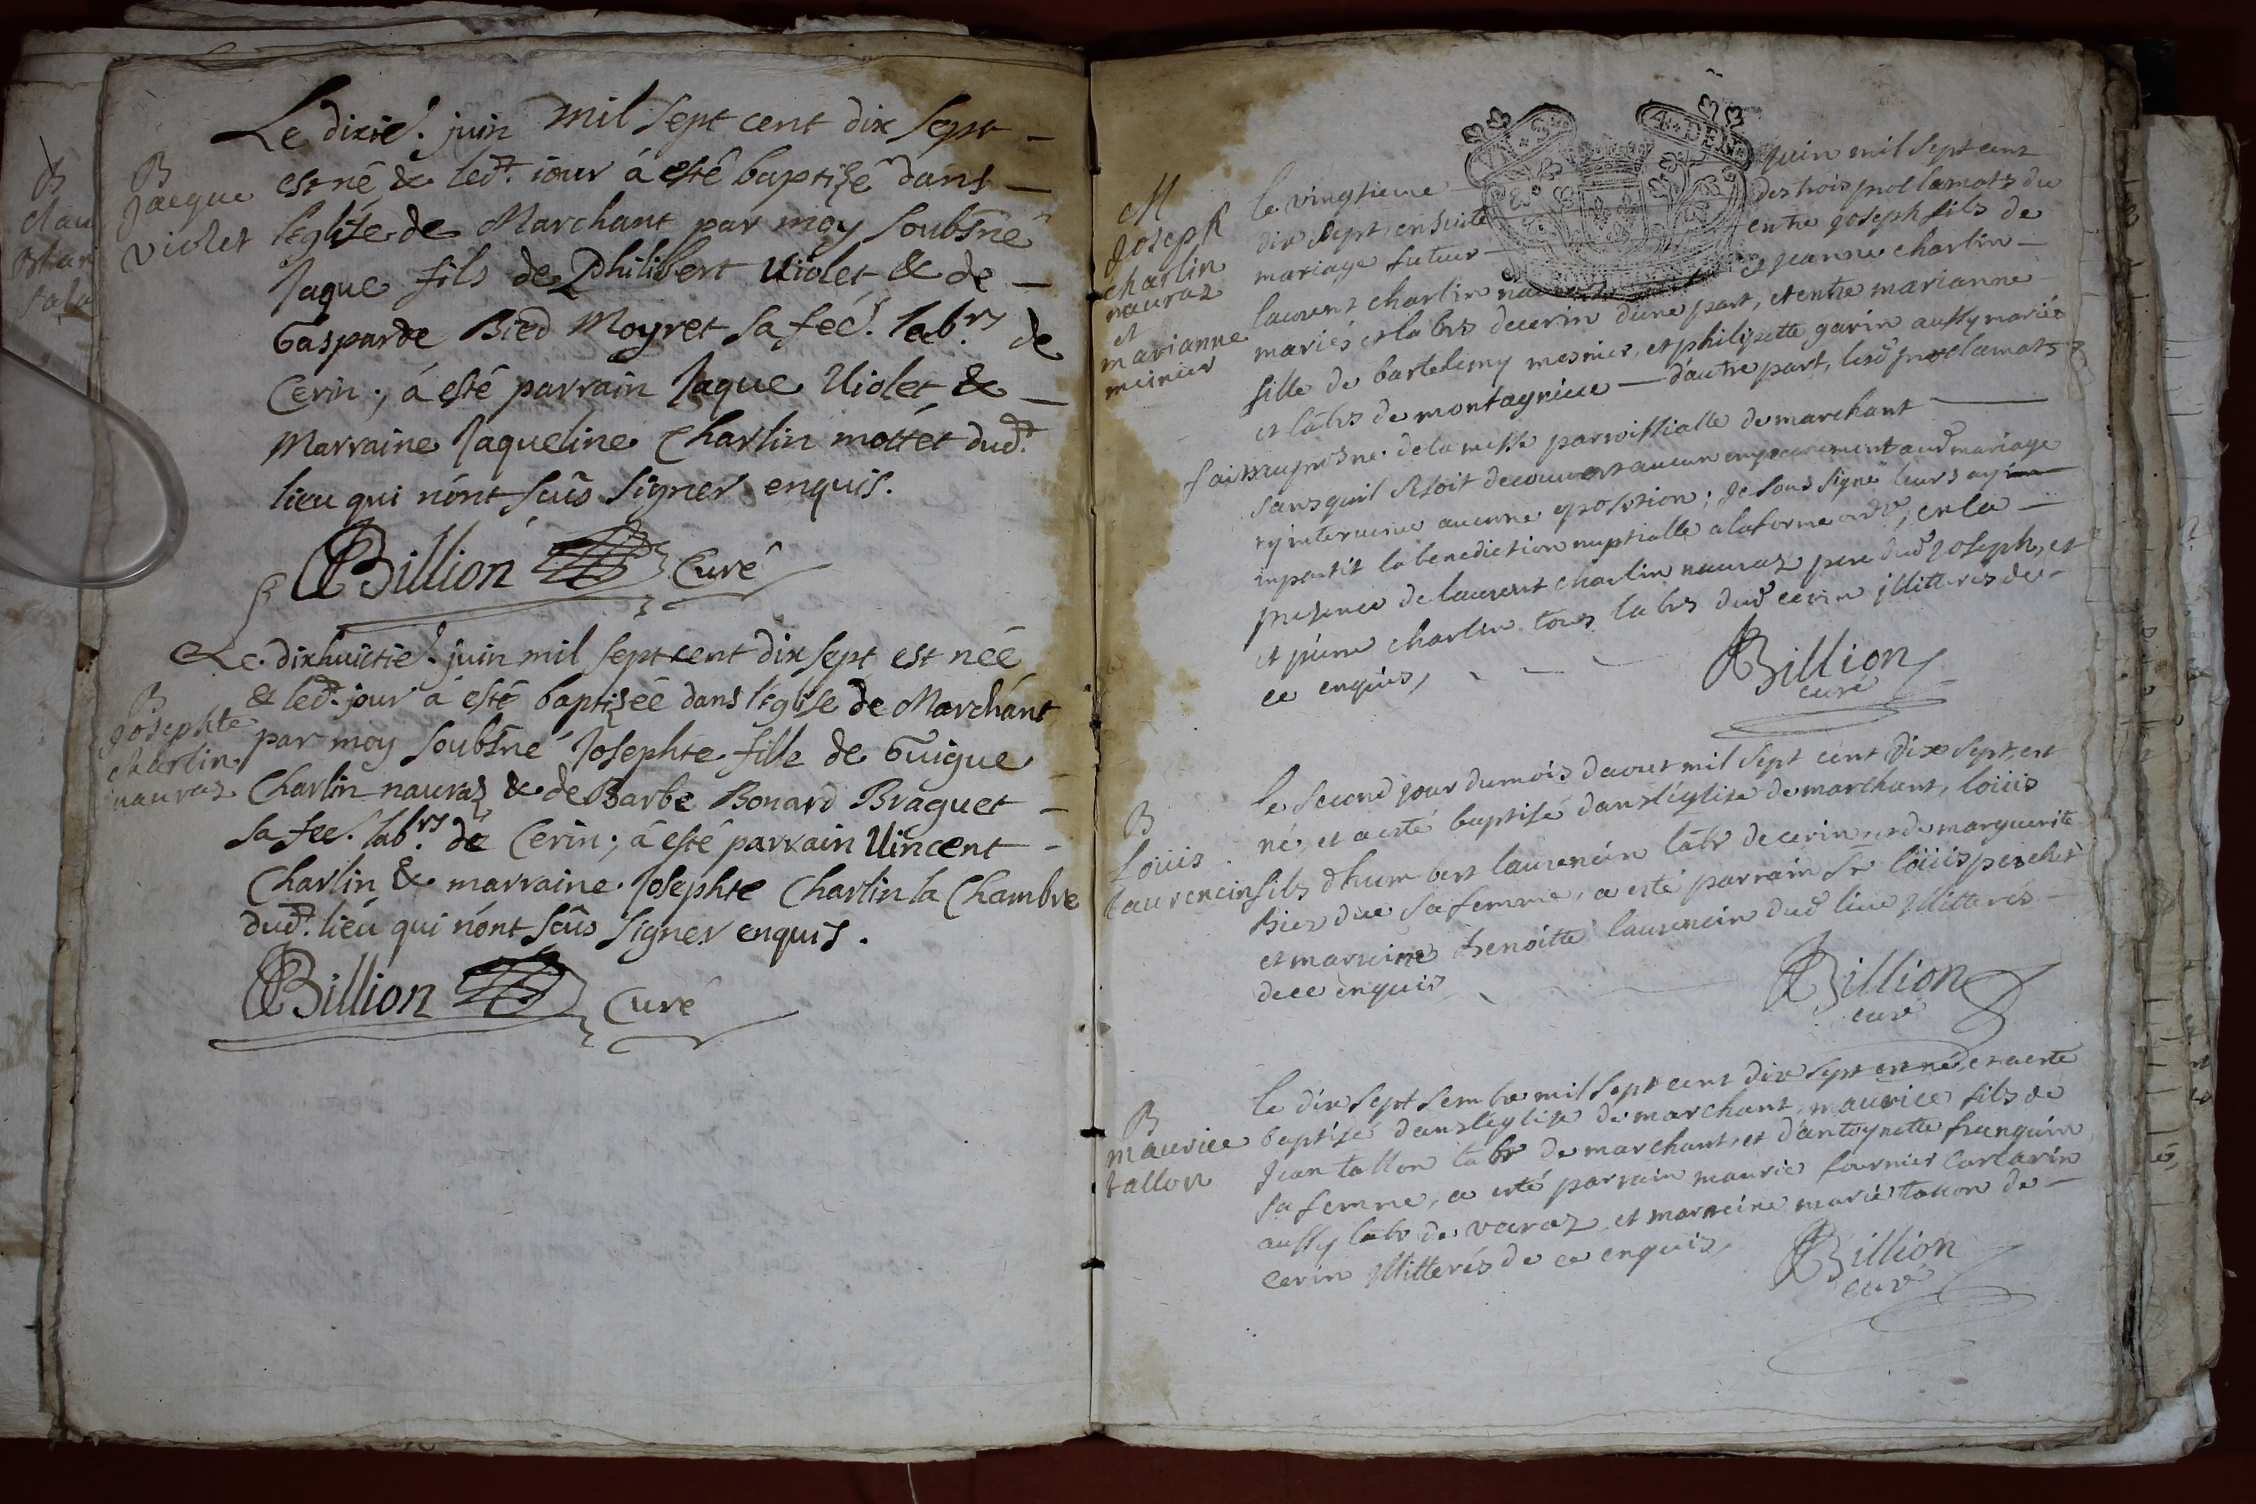 Le dixie. juin mil sept cent dix sept
B
Jacque
violet
est né & led. iour á esté baptizé dans
leglise de Marchant par moy soubsné
Jaque fils de Philibert Uiolet & de
Gasparde Bied Moyret sa feé. labrs de
Cerin; á esté parrain Jaque Uiolet &
Marraine Jaqueline Charlin mottét dud.
lieu qui nónt sçûs signer enquis.
Billion Curé
B
Josephte
charlin
nauraz
Le dixhuictie. juin mil sept cent dix sept est néé
& led. jour á esté baptizéé dans leglise de Marchánt
par moy soubsné Josephte fille de Guigue
Charlin nauraz & de Barbe Bonard Braguet
sa fee. labrs de Cerin; á esté parrain Uincent
Charlin & marraine Josephte Charlin la Chambre
dud. lieú qui nónt sçûs signer enquis.
Billion Curé
M
Joseph
charlin
nauraz
et
marianne
munier
4 DEN
le vingtieme juin mil sept cent
dix sept, ensuite des trois proclamats du
mariage futeur entre joseph fils de
laurent charlin et jeanne charlin
mariés et labrs decerin d'une part, et entre marianne
fille de bartelemy mesnier, et philipette garin aussy mariés
et labrs de montagnieu d'autre part, lesd proclamats
fais au prosne de la messe parroissialle de marchant
sans quil se soit decouvert aucun empechement aud mariage
ny intervenue aucune oposition; Je sous signé leurs ay
inpartit la benediction nuptialle a la forme ord, en la
presence de laurent charlin nauraz pere dud joseph, et
et pierre charlin tous labrs dud cerin illitterés de
ce enquis,
Billion
curé
B
Loüis
laurencin
le second jour du mois daoust mil sept cent dix sept, est
né, et a esté baptisé dans léglise de marchant, loüis
fils dhumbert laurencin labr de cerin et de marguerite
Bied sa femme, a esté parrain Sr loüis perchet
et marreine benoitte laurencin dud lieu illitterés
de ce enquis
Billion
curé
B
Maurice
tallon
le dix sept sembre mil sept cent dix sept est né, et a esté
baptisé dans léglise de marchant, maurice fils de
jean tallon labr de marchant, et d'antoynette franquin
sa femme, a esté parrain mauric fournier
aussy labr de varaz et marreine marie tallon de
cerin illitterés de ce enquis,
Billion
curé